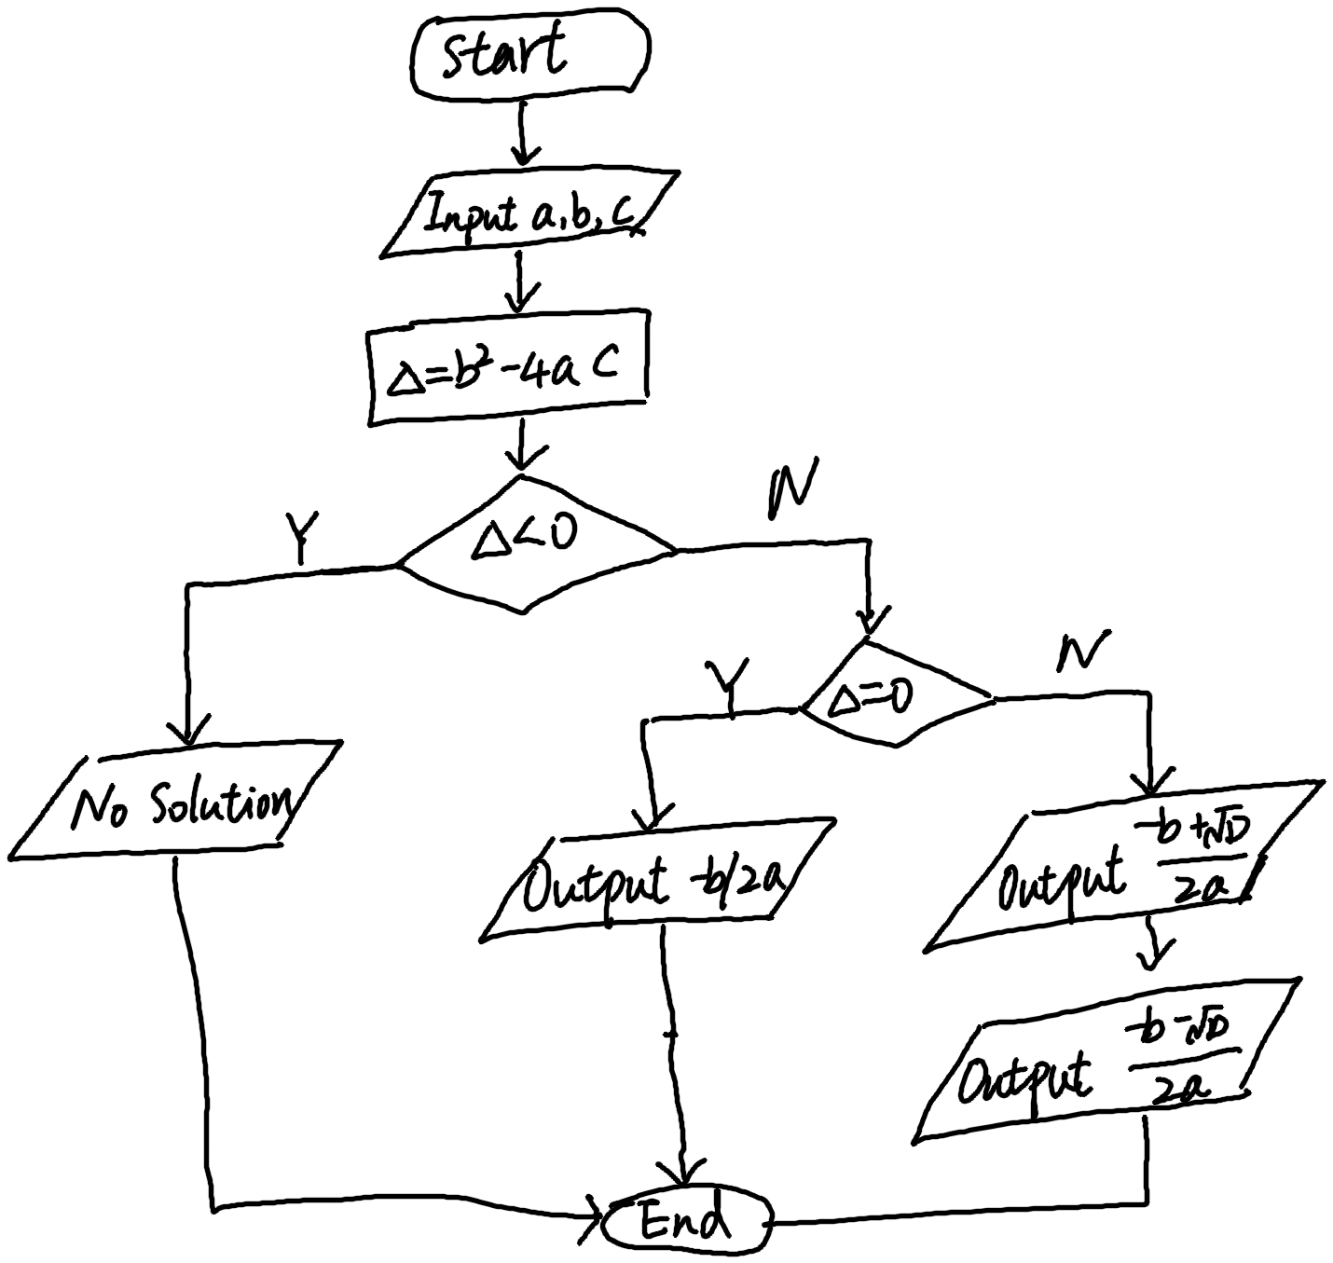 Start
Input a, b, c
Δ=b²-4ac
Δ<0
Y
N
Δ=0
Y
N
No Solution
Output -b/2a
Output (-b+√D)/2a
Output (-b-√D)/2a
End